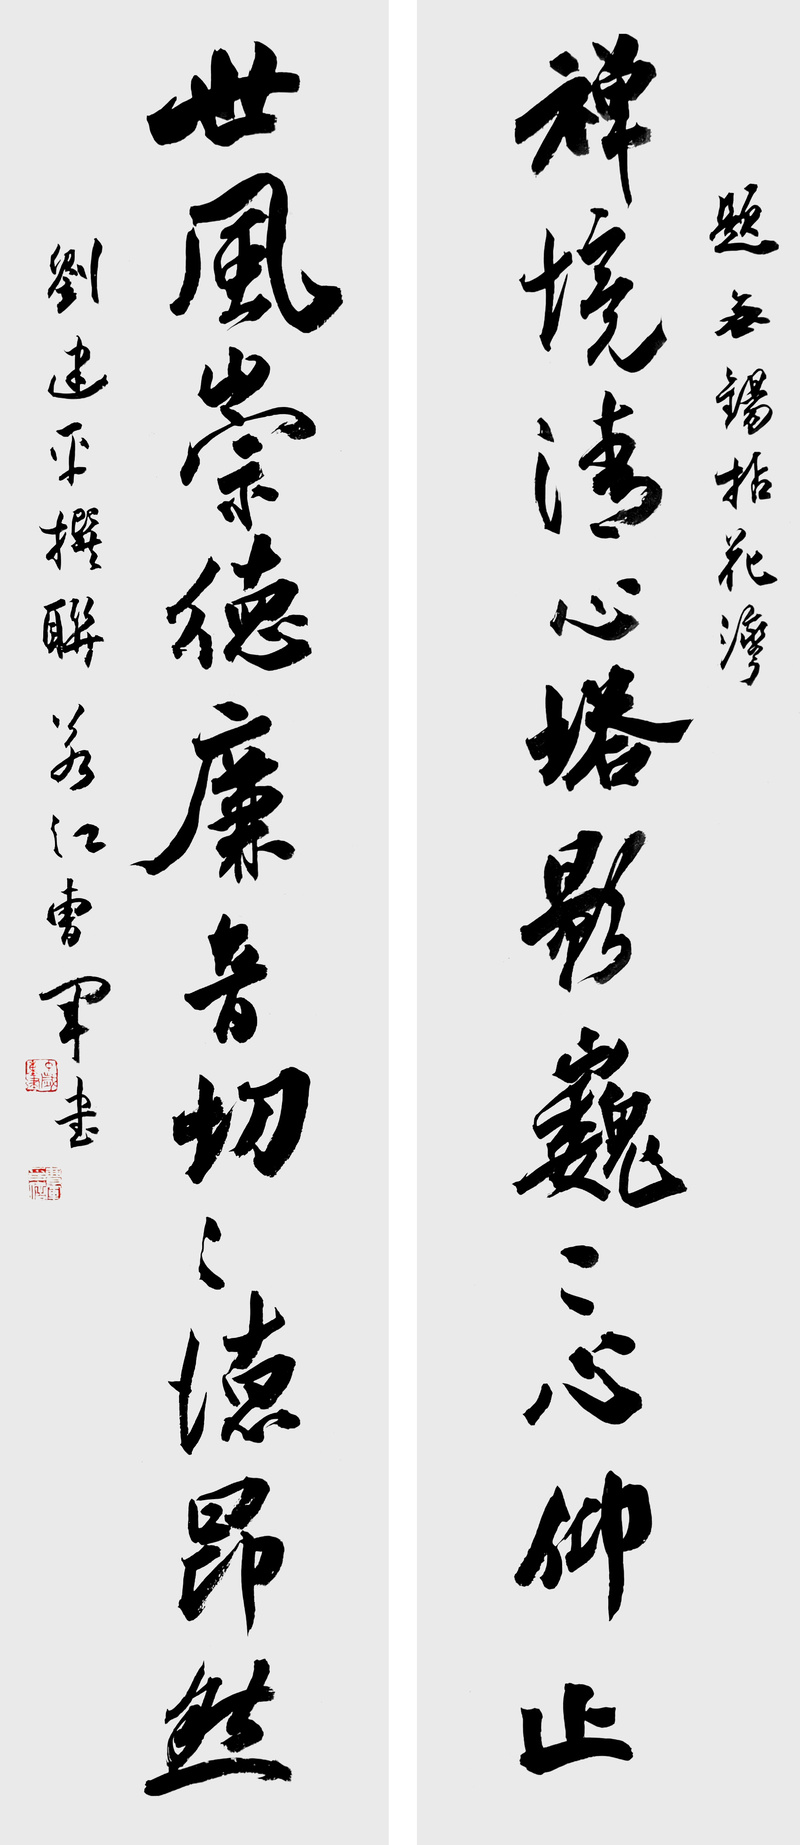 題無錫拈花灣
禪境清心塔影巍〻心仰止
世風崇德廉音切〻德昂然
劉建平撰聯若江曹軍書